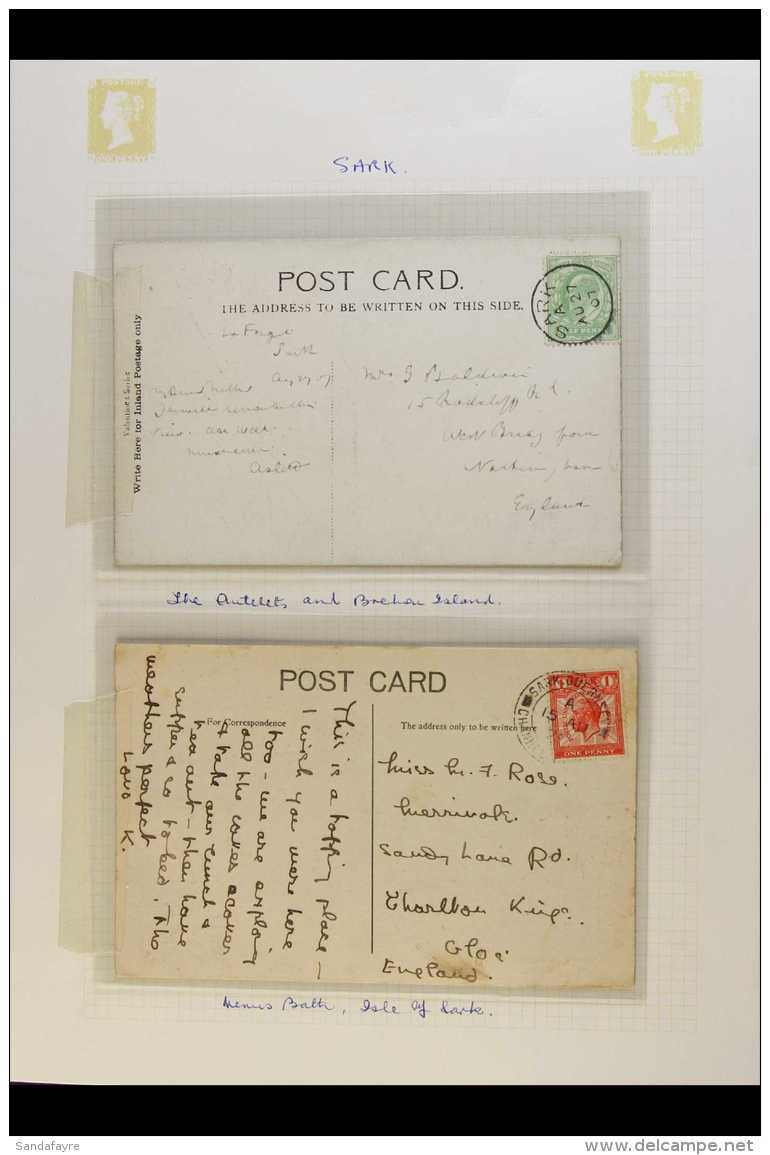 POSTAGE
ONE PENNY
POSTAGE
ONE PENNY
SARK.
POST CARD.
THE ADDRESS TO BE WRITTEN ON THIS SIDE.
SARK
A
AU 27
07
Valentines Series
Write Here for Inland Postage only
Sark
Mrs G Baldwin
15 Radcliffe Rd
West Bridgford
Nottingham
England
The Autelets and Brehou Island.
POST CARD
For Correspondence
The address only to be written here
SARK GUERNSEY
A
15 AU
ONE PENNY
This is a topping place –
I wish you were here
too – we are exploring
all the caves & coves
& take our lunch &
tea out – then have
supper & go to bed. The
weathers perfect
Love K.
Miss M. F. Rose.
Merrivale.
Sandy Lane Rd.
Charlton Kings.
Glos
England.
Venus Bath, Isle of Sark.
Sandafayre
delcampe.net